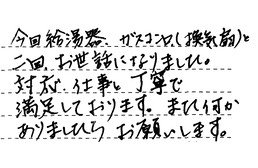 今回給湯器、ガスコンロ(換気扇)と
二回、お世話になりました。
対応、仕事と丁寧で
満足しております。また何か
ありましたら、お願いします。